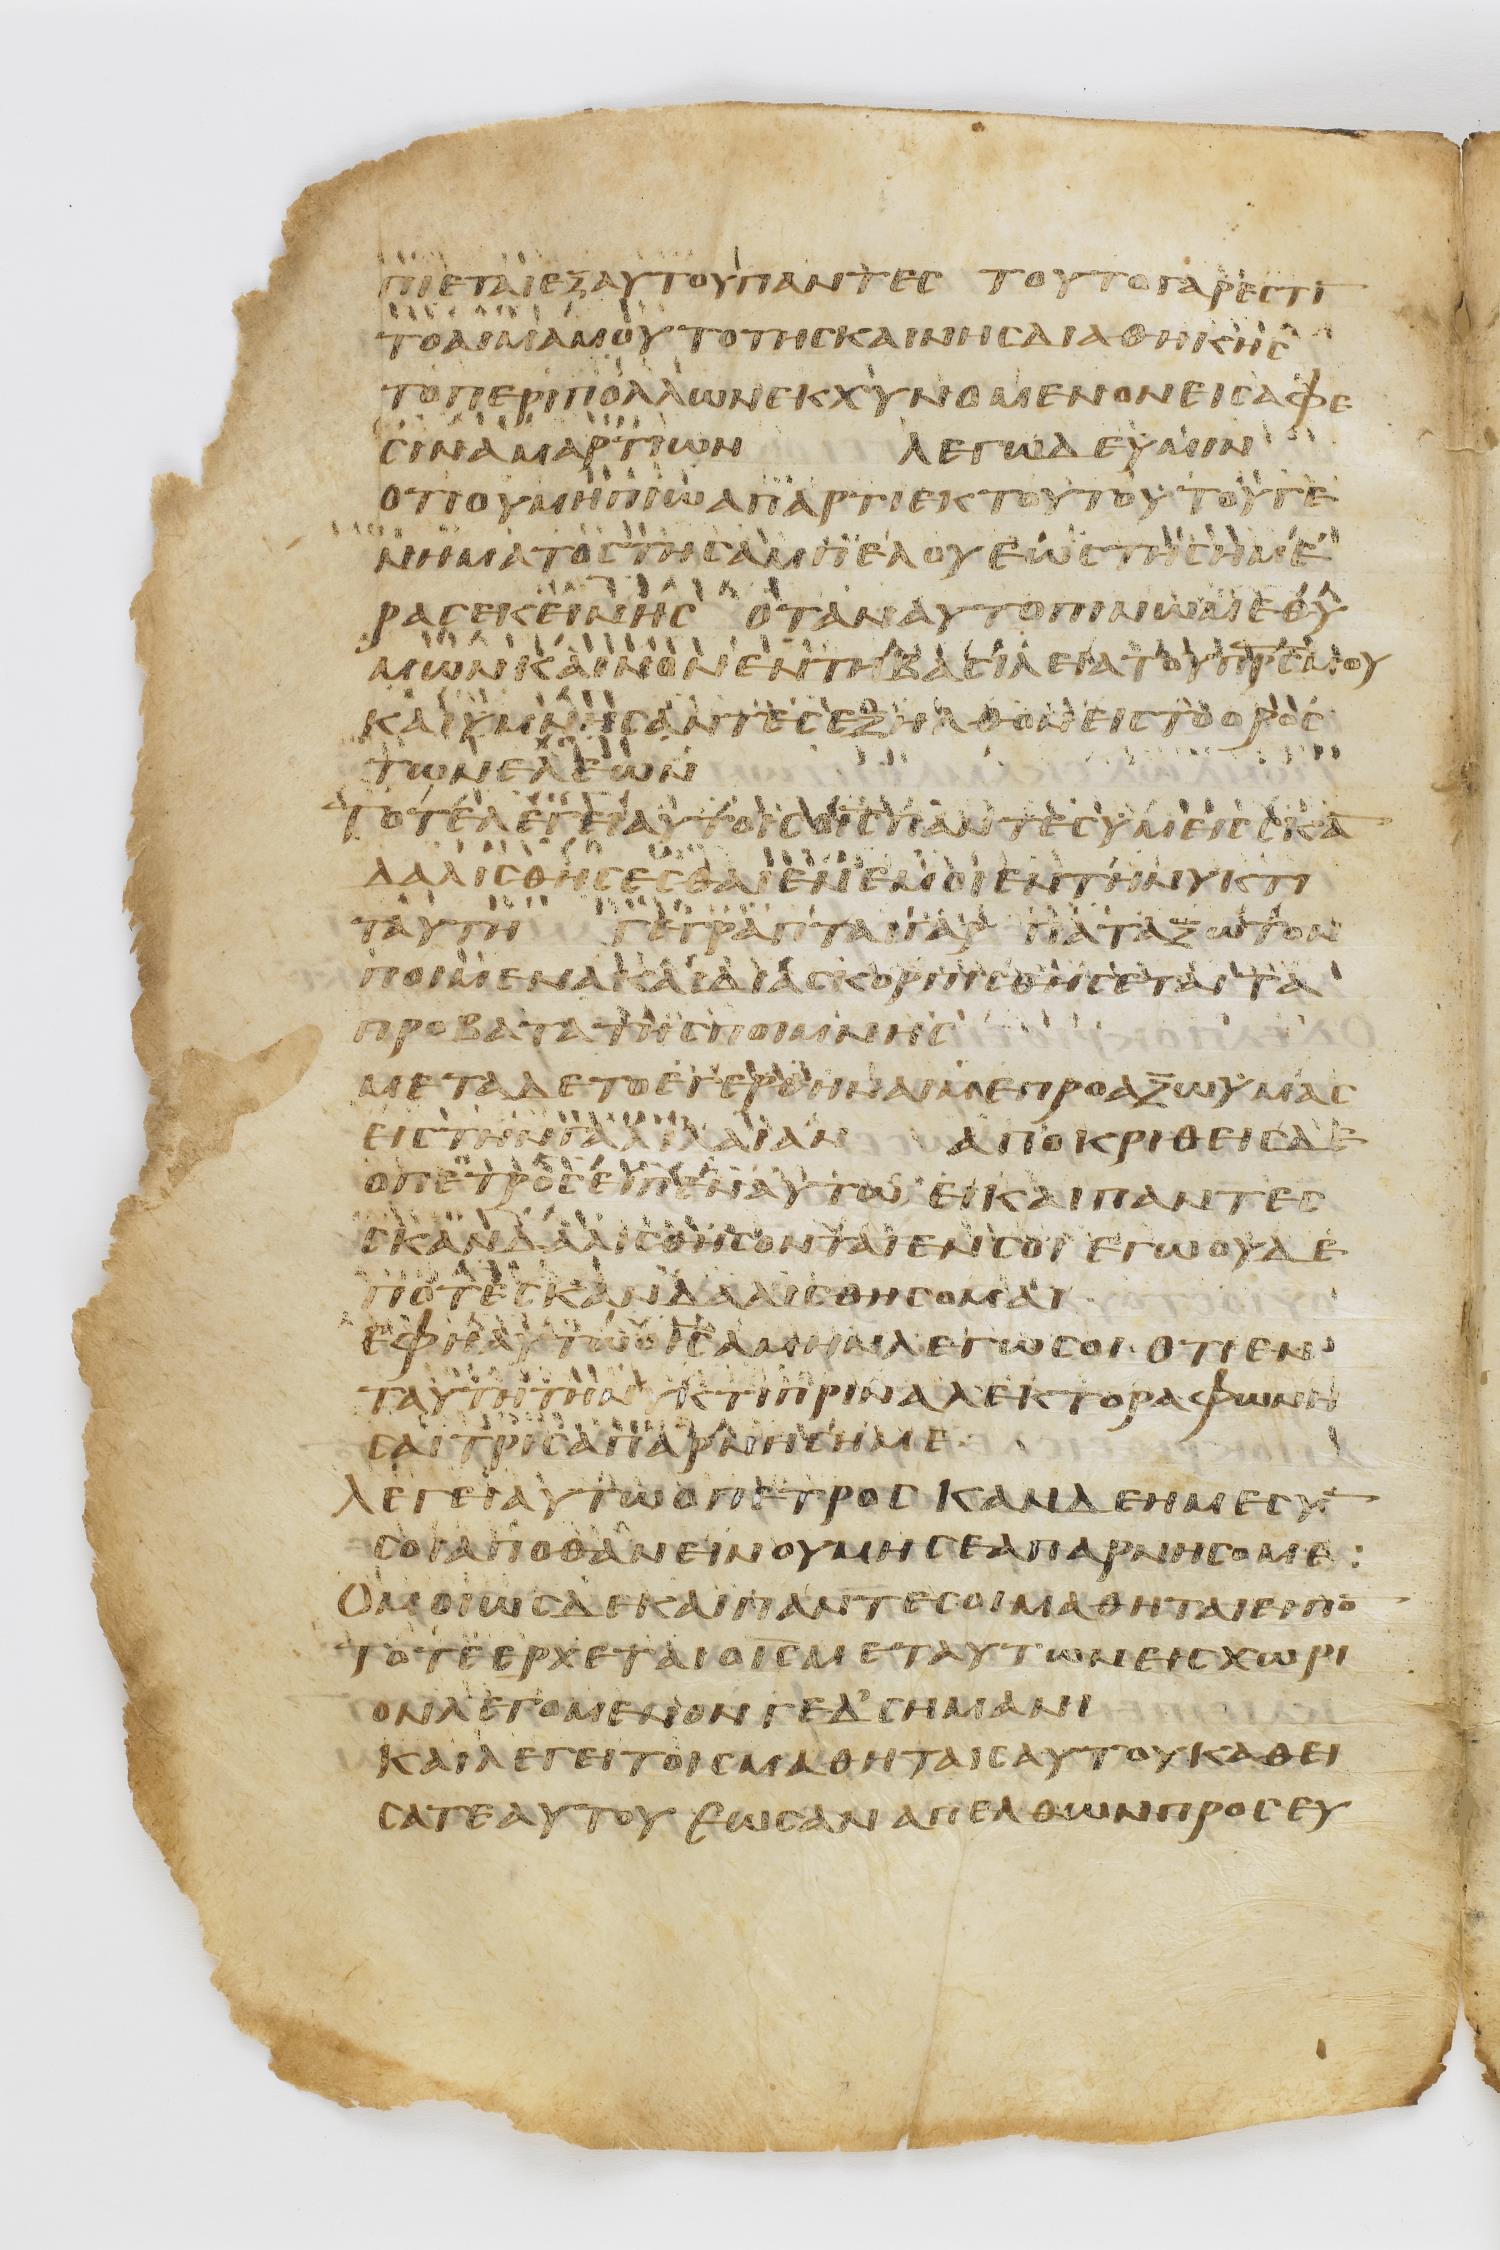 ΠΙΕΤΑΙΕΞΑΥΤΟΥΠΑΝΤΕС ΤΟΥΤΟΓΑΡΕСΤΙ
ΤΟΑΙΜΑΜΟΥΤΟΤΗСΚΑΙΝΗСΔΙΑΘΗΚΗС
ΤΟΠΕΡΙΠΟΛΛΩΝΕΚΧΥΝΟΜΕΝΟΝΕΙСΑΦΕ
СΙΝΑΜΑΡΤΙΩΝ ΛΕΓΩΔΕΥΜΙΝ
ΟΤΙΟΥΜΗΠΙΩΑΠΑΡΤΙΕΚΤΟΥΤΟΥΤΟΥΓΕ
ΝΗΜΑΤΟСΤΗСΑΜΠΕΛΟΥΕΩСΤΗСΗΜΕ
ΡΑСΕΚΕΙΝΗС ΟΤΑΝΑΥΤΟΠΙΝΩΜΕΘΥ
ΜΩΝΚΑΙΝΟΝΕΝΤΗΒΑСΙΛΕΙΑΤΟΥΠΡСΜΟΥ
ΚΑΙΥΜΝΗСΑΝΤΕСΕΞΗΛΘΟΝΕΙСΤΟΟΡΟС
ΤΩΝΕΛΕΩΝ
ΤΟΤΕΛΕΓΕΙΑΥΤΟΙСΟΙСΠΑΝΤΕСΥΜΕΙССΚΑ
ΔΑΛΙСΘΗСΕСΘΑΙΕΝΕΜΟΙΕΝΤΗΝΥΚΤΙ
ΤΑΥΤΗ ΓΕΓΡΑΠΤΑΙΓΑΡ ΠΑΤΑΞΩΤΟΝ
ΠΟΙΜΕΝΑΚΑΙΔΙΑСΚΟΡΠΙСΘΗСΕΤΑΙΤΑ
ΠΡΟΒΑΤΑΤΗСΠΟΙΜΝΗС
ΜΕΤΑΔΕΤΟΕΓΕΡΘΗΝΑΙΜΕΠΡΟΑΞΩΥΜΑС
ΕΙСΤΗΝΓΑΛΙΛΑΙΑΝ ΑΠΟΚΡΙΘΕΙСΔΕ
ΟΠΕΤΡΟСΕΙΠΕΝΑΥΤΩ ΕΙΚΑΙΠΑΝΤΕС
СΚΑΝΔΑΛΙСΘΗСΟΝΤΑΙΕΝСΟΙ ΕΓΩΟΥΔΕ
ΠΟΤΕСΚΑΝΔΑΛΙСΘΗСΟΜΑΙ
ΕΦΗΑΥΤΩΟΙСΑΜΗΝΛΕΓΩСΟΙ·ΟΤΙΕΝ
ΤΑΥΤΗΤΗΝΥΚΤΙΠΡΙΝΑΛΕΚΤΟΡΑΦΩΝΗ
СΑΙΤΡΙСΑΠΑΡΝΗСΗΜΕ·
ΛΕΓΕΙΑΥΤΩΟΠΕΤΡΟСΚΑΝΔΕΗΜΕСΥ
СΟΙΑΠΟΘΑΝΕΙΝΟΥΜΗСΕΑΠΑΡΝΗСΟΜΕ:
ΟΜΟΙΩСΔΕΚΑΙΠΑΝΤΕСΟΙΜΑΘΗΤΑΙΕΙΠΟ
ΤΟΤΕΕΡΧΕΤΑΙΟΙСΜΕΤΑΥΤΩΝΕΙСΧΩΡΙ
ΟΝΛΕΓΟΜΕΝΟΝΓΕΔСΗΜΑΝΙ
ΚΑΙΛΕΓΕΙΤΟΙСΜΑΘΗΤΑΙСΑΥΤΟΥΚΑΘΕΙ
СΑΤΕΑΥΤΟΥΕΩСΑΝΑΠΕΛΘΩΝΠΡΟСΕΥ